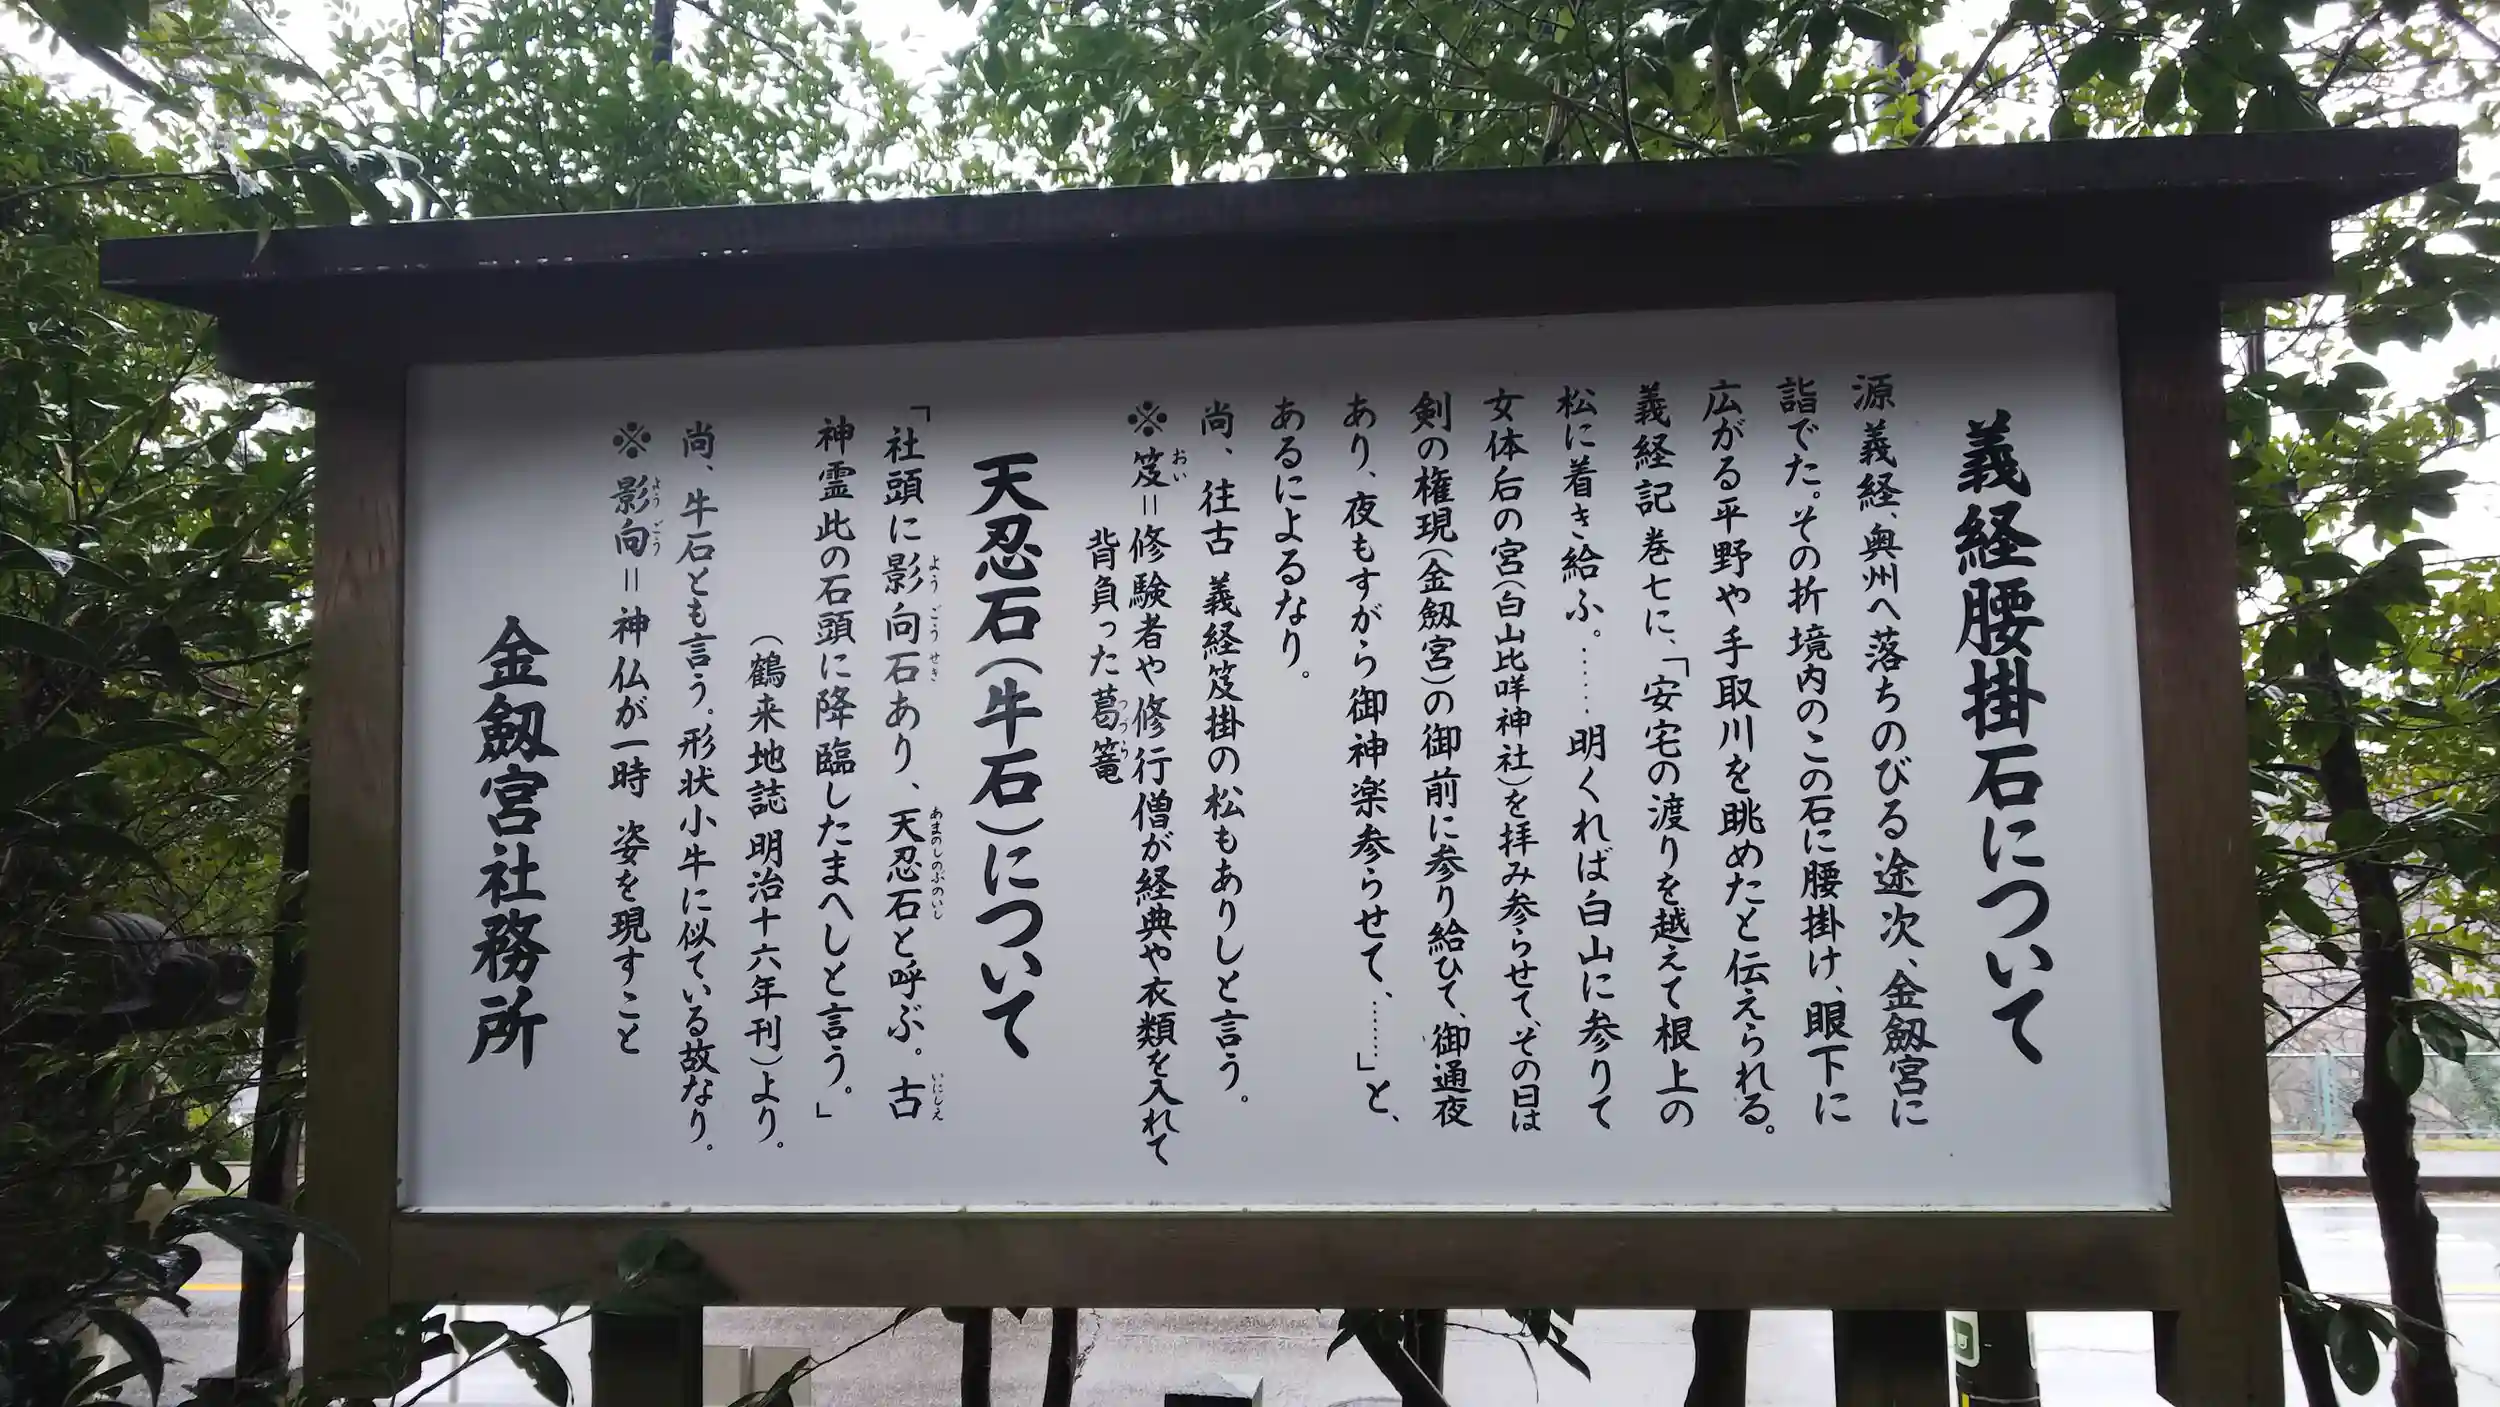 義経腰掛石について
源義経、奥州へ落ちのびる途次、金劔宮に
詣でた。その折境内のこの石に腰掛け、眼下に
広がる平野や手取川を眺めたと伝えられる。
義経記巻七に、「安宅の渡りを越えて根上の
松に着き給ふ。……明くれば白山に参りて
女体后の宮(白山比咩神社)を拝み参らせて、その日は
剣の権現(金劔宮)の御前に参り給ひて、御通夜
あり、夜もすがら御神楽参らせて、……」と、
あるによるなり。
尚、往古 義経笈掛の松もありしと言う。
※笈=修験者や修行僧が経典や衣類を入れて
おい
背負った葛篭
つづら
天忍石(牛石)について
「社頭に影向石あり、天忍石と呼ぶ。古
ようごうせき
あまのしのぶのいし
いにしえ
神霊此の石頭に降臨したまへしと言う。」
(鶴来地誌 明治十六年刊)より。
尚、牛石とも言う。形状小牛に似ている故なり。
※影向=神仏が一時 姿を現すこと
ようごう
金劔宮社務所